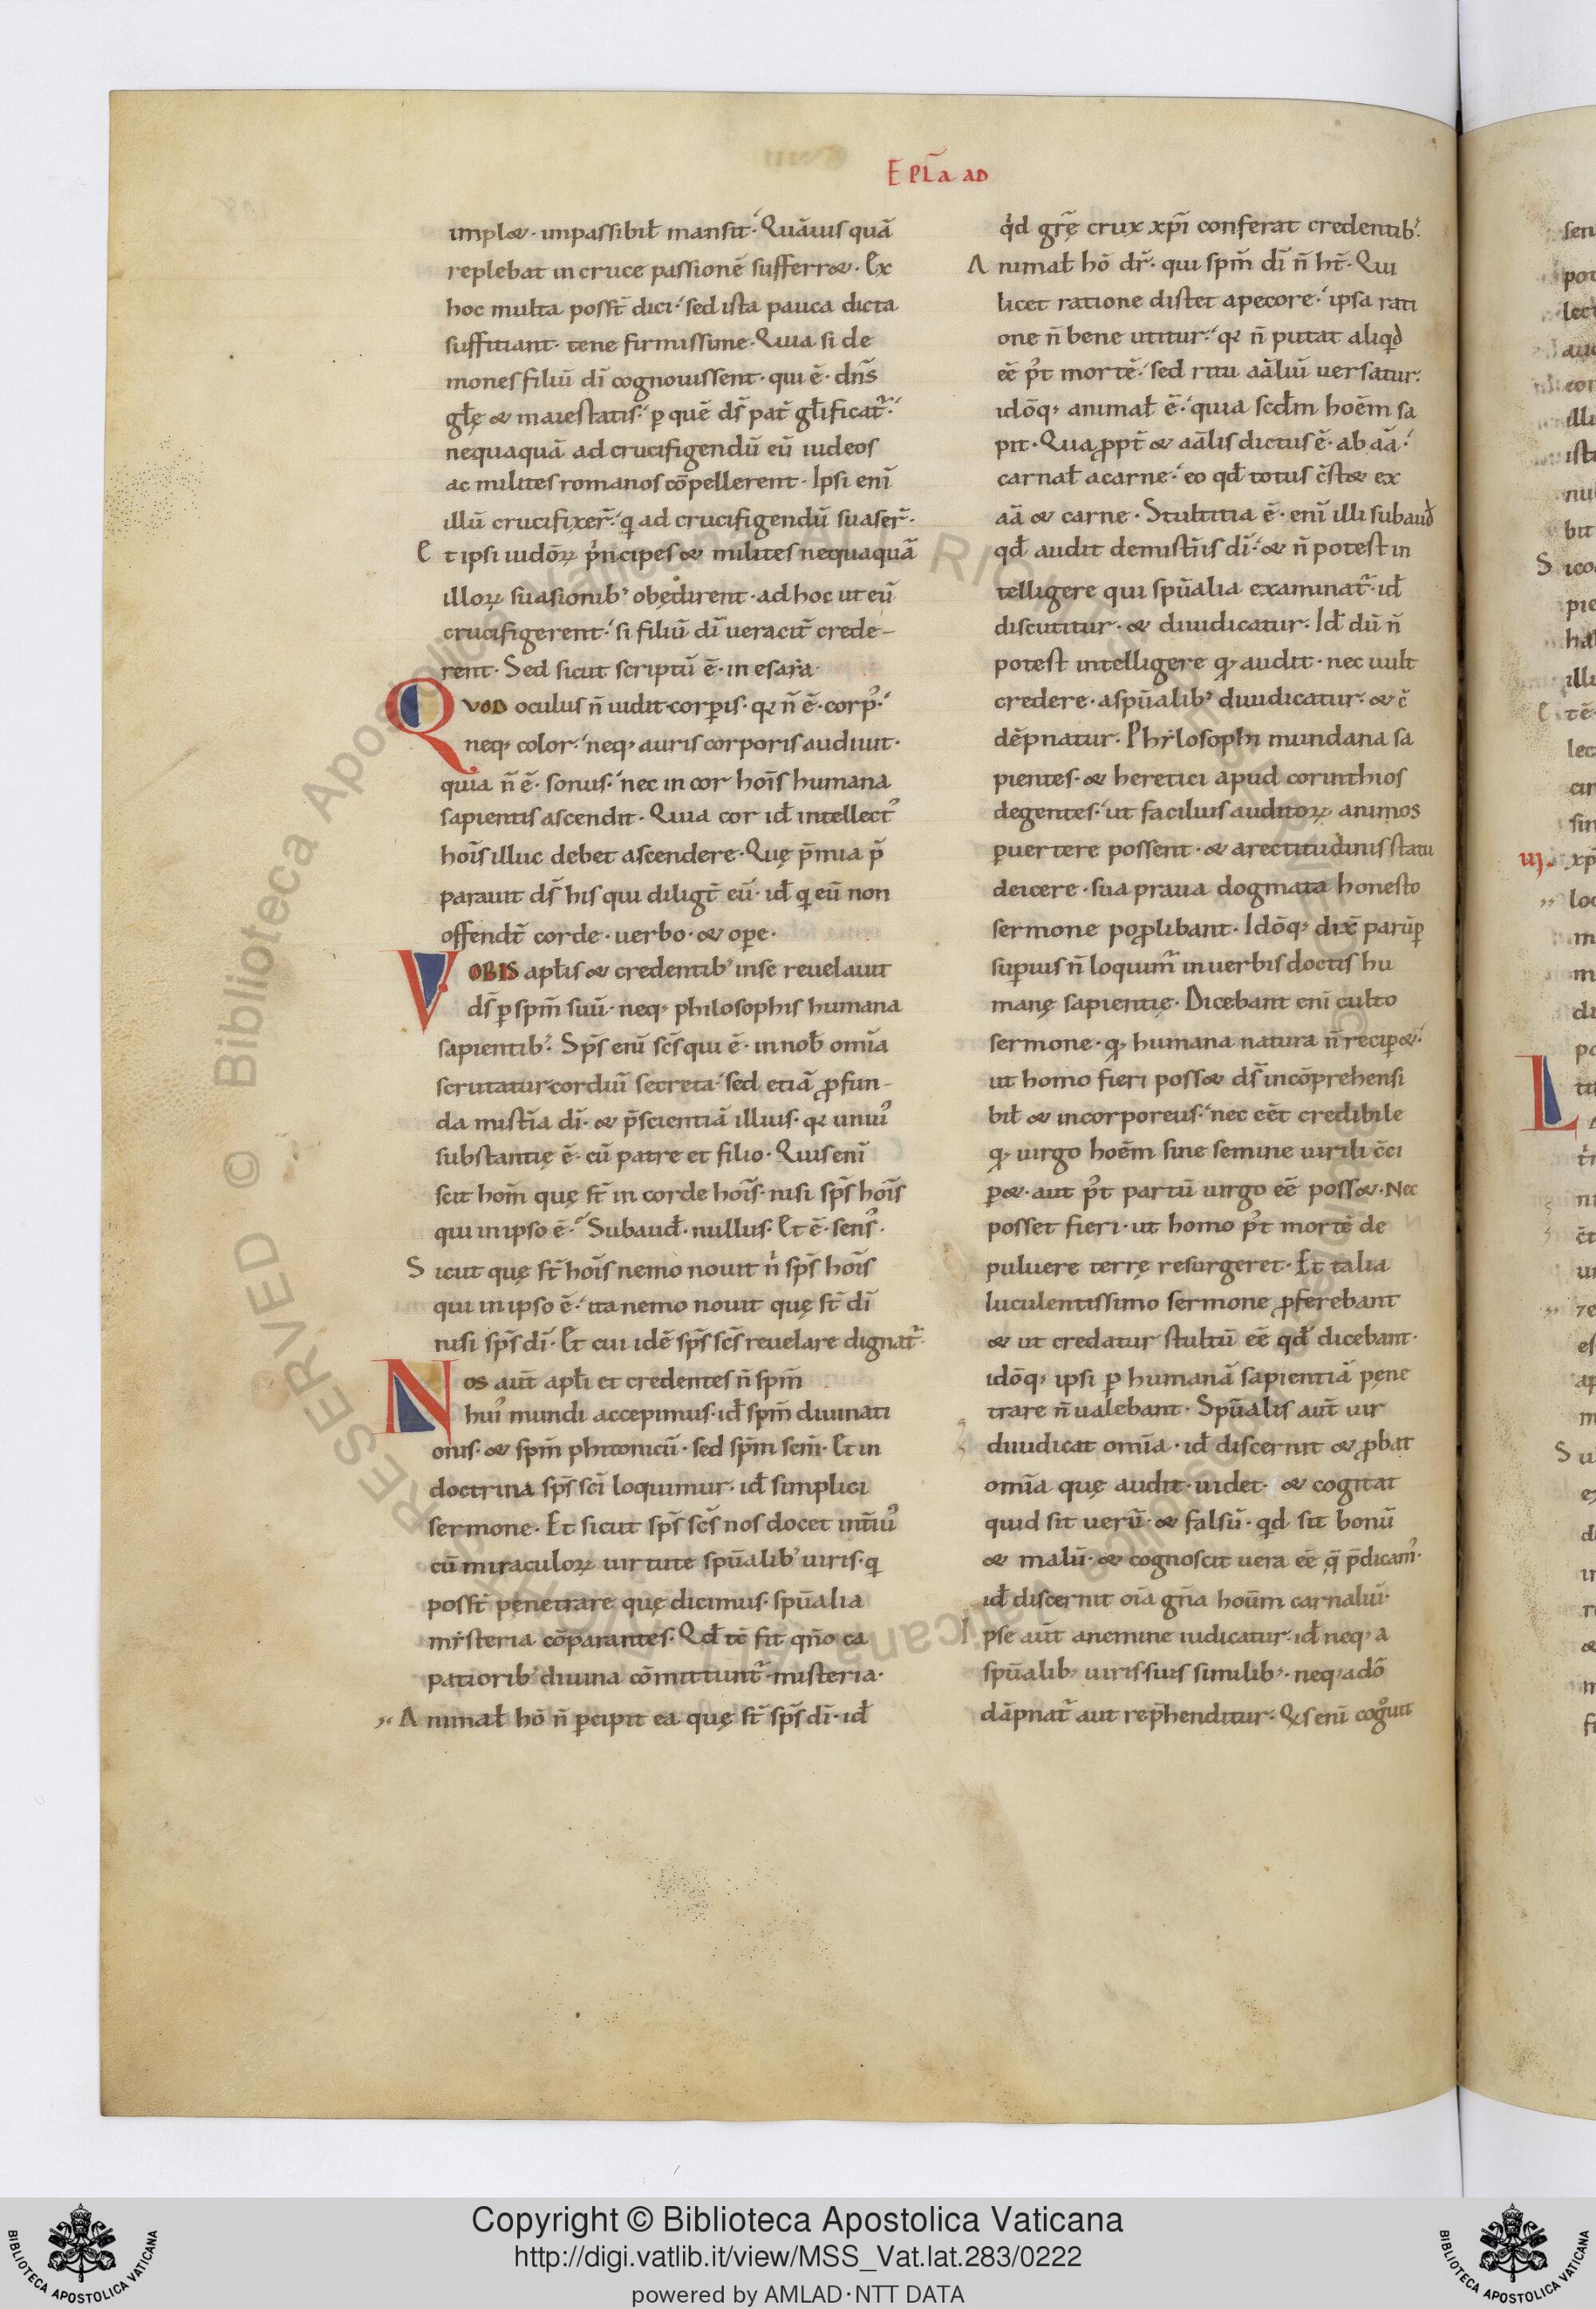 EPL̄a AD
implet · inpassibil̄ mansit · Quāuis quā
replebat in cruce passionē sufferret · Ex
hoc multa posst̄ dici · sed ista pauca dicta
suffitiant · tene firmissime · Quia si de
mones filiū dī cognouissent · qui ē · dn̄s
gl̄ę et maiestatis · ꝑ quē ds̄ pat̄ gl̄ificat̄ ·
nequaquā ad crucifigendū eū iudeos
ac milites romanos cōpellerent · Ipsi enī
illū crucifixer̄ · q̄ ad crucifigendū suaser̄ ·
Et ipsi iudōꝝ pͥncipes et milites nequaquā
illoꝝ suasionibꝰ obędirent · ad hoc ut eū
crucifigerent · si filiū dī ueracit̄ crede-
rent · Sed sicut scriptū ē · in esaia
QVOD oculus n̄ uidit corꝑis · qꝛ n̄ ē · corpꝰ ·
neqꝫ color · neqꝫ auris corporis audiuit ·
quia n̄ ē · sonus · nec in cor hoīs humana
sapientis ascendit · Quia cor id̄ intellectꝰ
hoīs illuc debet ascendere · Quę p̄mia p̄
parauit ds̄ his qui diligt̄ eū · id̄ q̄ eū non
offendt̄ corde · uerbo · et oꝑe ·
VOBIS apl̄is et credentibꝰ in se reuelauit
ds̄ ꝑ spm̄ suū · neqꝫ philosophis humana
sapientibꝰ · Sps̄ enī sc̄s qui ē · in nob̄ omīa
scrutatur cordiū secreta · sed etiā ꝓfun-
da mist̄ia dī · et p̄scientiā illius · qꝛ uniuꝰ
substantię ē · cū patre et filio · Quis enī
scit hom̄ quę st̄ in corde hoīs · nisi sps̄ hoīs
qui in ipso ē · Subaud̄ · nullus · Et ē · sensꝰ ·
Sicut quę st̄ hoīs nemo nouit nͥ sps̄ hoīs
qui in ipso ē · ita nemo nouit quę st̄ dī
nisi sps̄ dī · Et cui idē sps̄ sc̄s reuelare dignat̄ ·
NOS aut̄ apl̄i et credentes n̄ spm̄
huiꝰ mundi accepimus · id̄ spm̄ diuinati
onis · et spm̄ phitonicū · sed spm̄ scm̄ · Et in
doctrina sps̄ sc̄i loquimur · id̄ simplici
sermone · Et sicut sps̄ sc̄s nos docet int̄iuꝰ
cū miraculoꝝ uirtute spūalibꝰ uiris · q̄
posst̄ penetrare quę dicimus · spūalia
misteria cōparantes · Qd̄ tc̄ fit qn̄o ca
patioribꝰ diuina cōmittunt̄ · misteria ·
Animal̄ hō n̄ ꝑcipit ea quę st̄ sps̄ dī · id̄
qͥd gr̄ę crux xp̄i conferat credentibꝰ ·
Animal̄ hō dr̄ · qui spm̄ dī n̄ ht̄ · Qui
licet ratione distet a pecore · ipsa rati
one n̄ bene utitur · qꝛ n̄ putat aliqͥd
eē pꝰt mortē · sed ritu aālīū uersatur ·
idōqꝫ animal̄ ē · quia scd̄m hoēm sa
pit · Quaꝓpt̄ et aālis dictus ē · ab aā ·
carnal̄ a carne · eo qd̄ totus c̄stet ex
aā et carne · Stultitia ē · enī illi subaud̄
qd̄ audit de mist̄iis dī · et n̄ potest in
telligere qui spūalia examinat̄ · id̄
discutitur · et diiudicatur · Id̄ dū n̄
potest intelligere qͣ audit · nec uult
credere · a spūalibꝰ diiudicatur · et c̄
dēpnatur · Philosophi mundana sa
pientes · et heretici apud corinthios
degentes · ut facilius auditoꝝ animos
ꝑuertere possent · et a rectitudinis statu
deicere · sua praua dogmata honesto
sermone poꝓlibant · Idōqꝫ dix̄ parūꝑ
suꝑius n̄ loquim̄ in uerbis doctis hu
manę sapientię · Dicebant enī culto
sermone · qͣ humana natura n̄ reciꝑet ·
ut homo fieri posset ds̄ incōprehensi
bil̄ et incorporeus · nec eēt credibile
qͣ uirgo hoēm sine semine uirili c̄ci
ꝑet · aut pꝰt partū uirgo eē posset · Nec
posset fieri · ut homo pꝰt mortē de
puluere terrę resurgeret · Et talia
luculentissimo sermone ꝓferebant
et ut credatur stultū eē qd̄ dicebant ·
idōqꝫ ipsi ꝑ humanā sapientiā pene
trare n̄ ualebant · Spūalis aut̄ uir
diiudicat omīa · id̄ discernit et ꝓbat
omīa quę audit · uidet · et cogitat
quid sit uerū · et falsū · qͥd sit bonū
et malū · et cognoscit uera eē q̄ p̄dicamꝰ ·
id̄ discernit oīa gn̄a hoūm carnaliū ·
Ipse aūt a nemine iudicatur · id̄ neqꝫ a
spūalibꝫ uiris suis similibꝫ · neqꝫ a dō
dāpnat̄ aut rep̄henditur · Qͥs enī cogͦuit